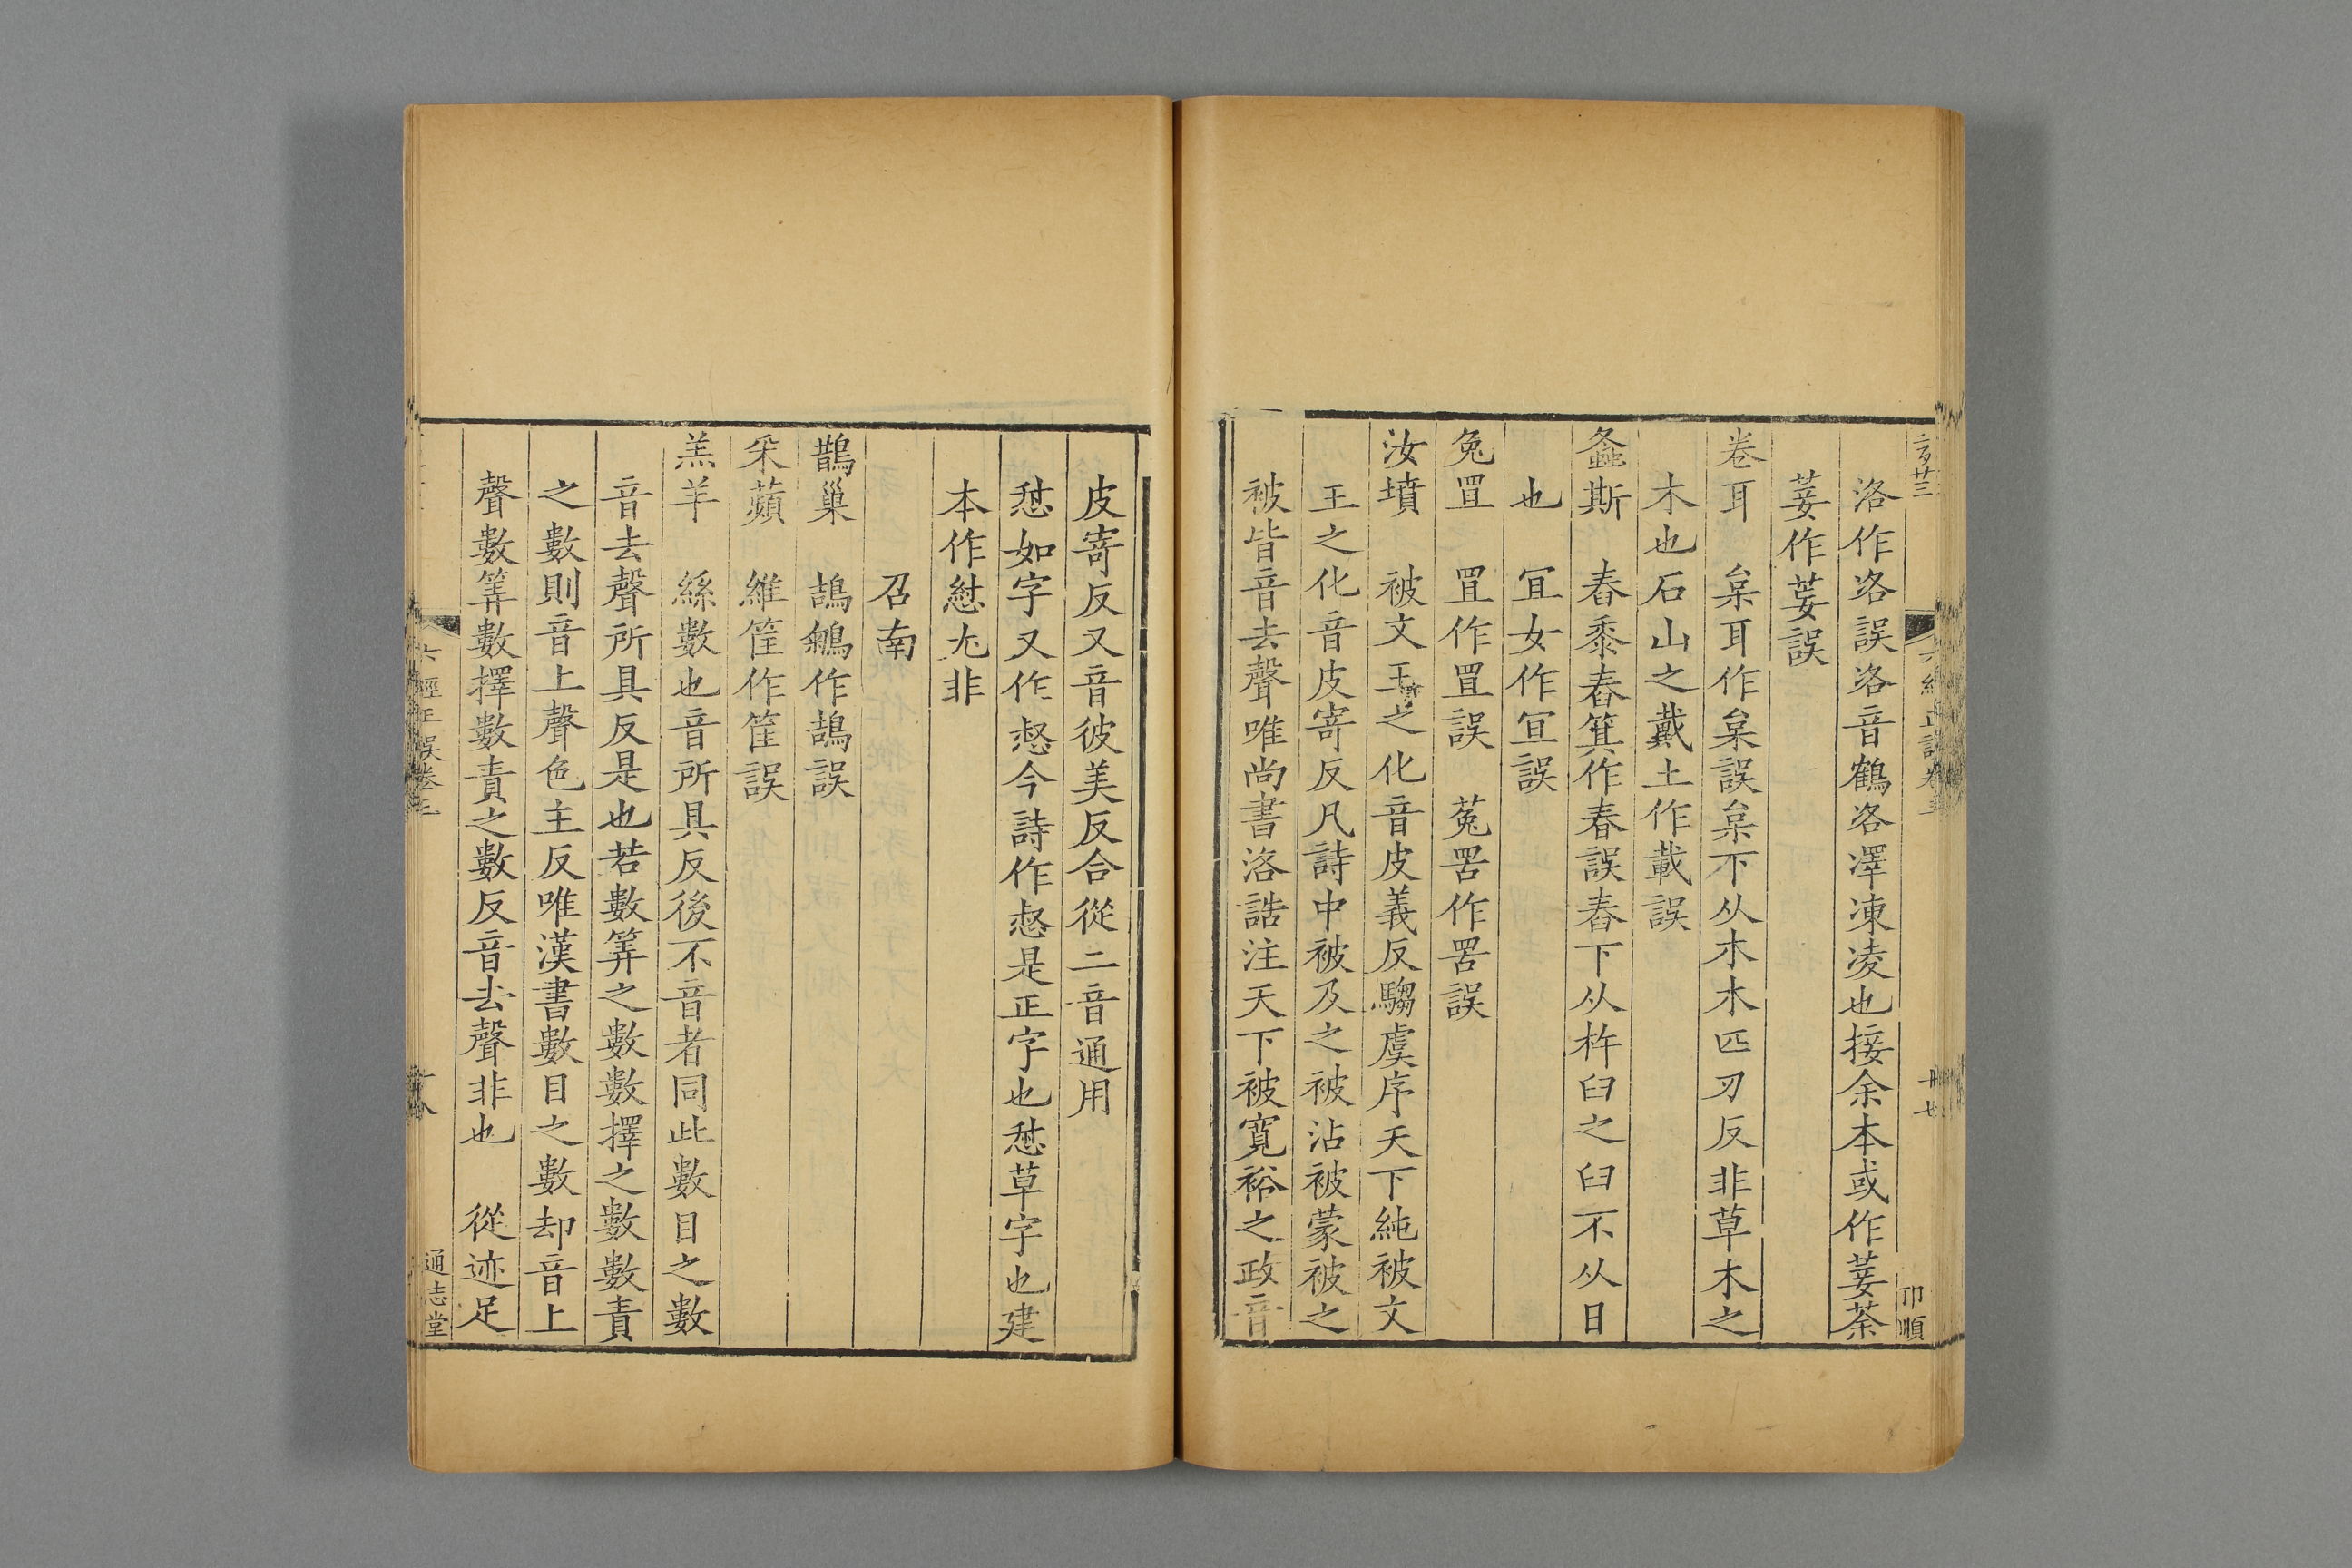 洛作洛誤洛音鶴洛澤凍凌也接余本或作荽荼
荽作荽誤
卷耳　枲耳作枲誤枲不从木木匹刃反非草木之
木也石山之戴土作載誤
螽斯　舂黍舂箕作春誤舂下从杵臼之臼不从日
也　宜女作宣誤
兔罝　罝作罝誤　菟罟作罟誤
汝墳　被文王之化音皮義反騶虞序天下純被文
王之化音皮寄反凡詩中被及之被沾被蒙被之
被皆音去聲唯尚書洛誥注天下被寬裕之政音
六經正誤卷三
卬順
皮寄反又音彼美反合從二音通用
愸如字又作惄今詩作惄是正字也愸草字也建
本作慰尤非
召南
鵲巢　鴶鵴作鴶誤
采蘋　維筐作筐誤
羔羊　絲數也音所具反後不音者同此數目之數
音去聲所具反是也若數筭之數數擇之數數責
之數則音上聲色主反唯漢書數目之數却音上
聲數筭數擇數責之數反音去聲非也　從迹足
六經正誤卷三
十八
通志堂